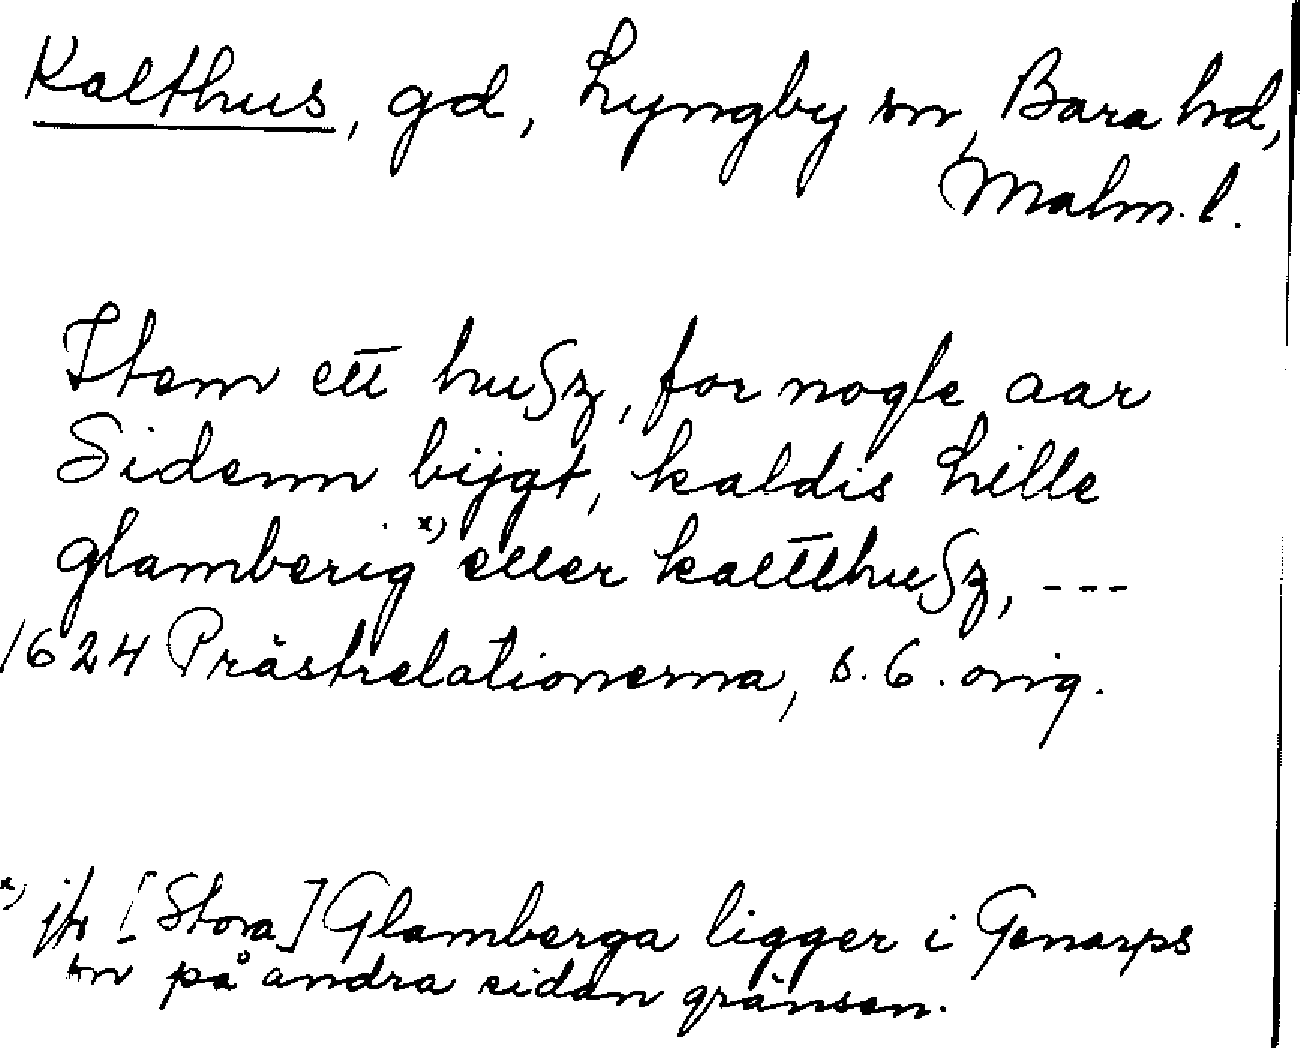 Kalthus, gd, Lyngby sn, Bara hd,
Malm. l.
Item ett huſz, for nogle aar
Sidenn bijgt, kaldis Lille
glamberig x) eller kalltthuſz, ---
1624 Prästrelationerna, s. 6. orig.
x) jfr [Stora] Glamberga ligger i Genarps
sn på andra sidan gränsen.